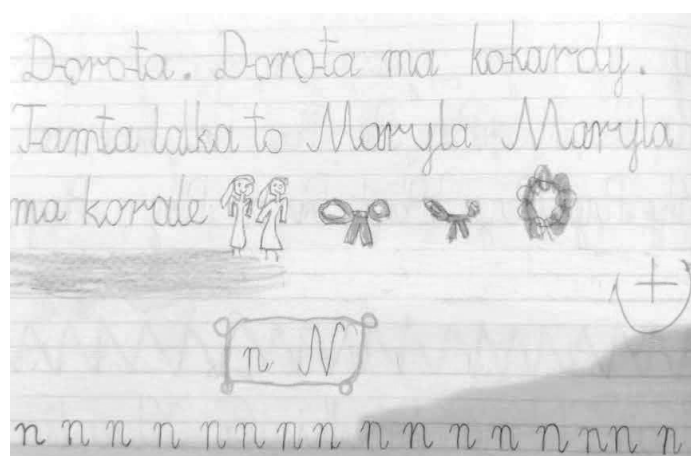 Dorota. Dorota ma kokardy.
Tamta lalka to Maryla Maryla
ma korale
n N
n n n n n n n n n n n n n n n